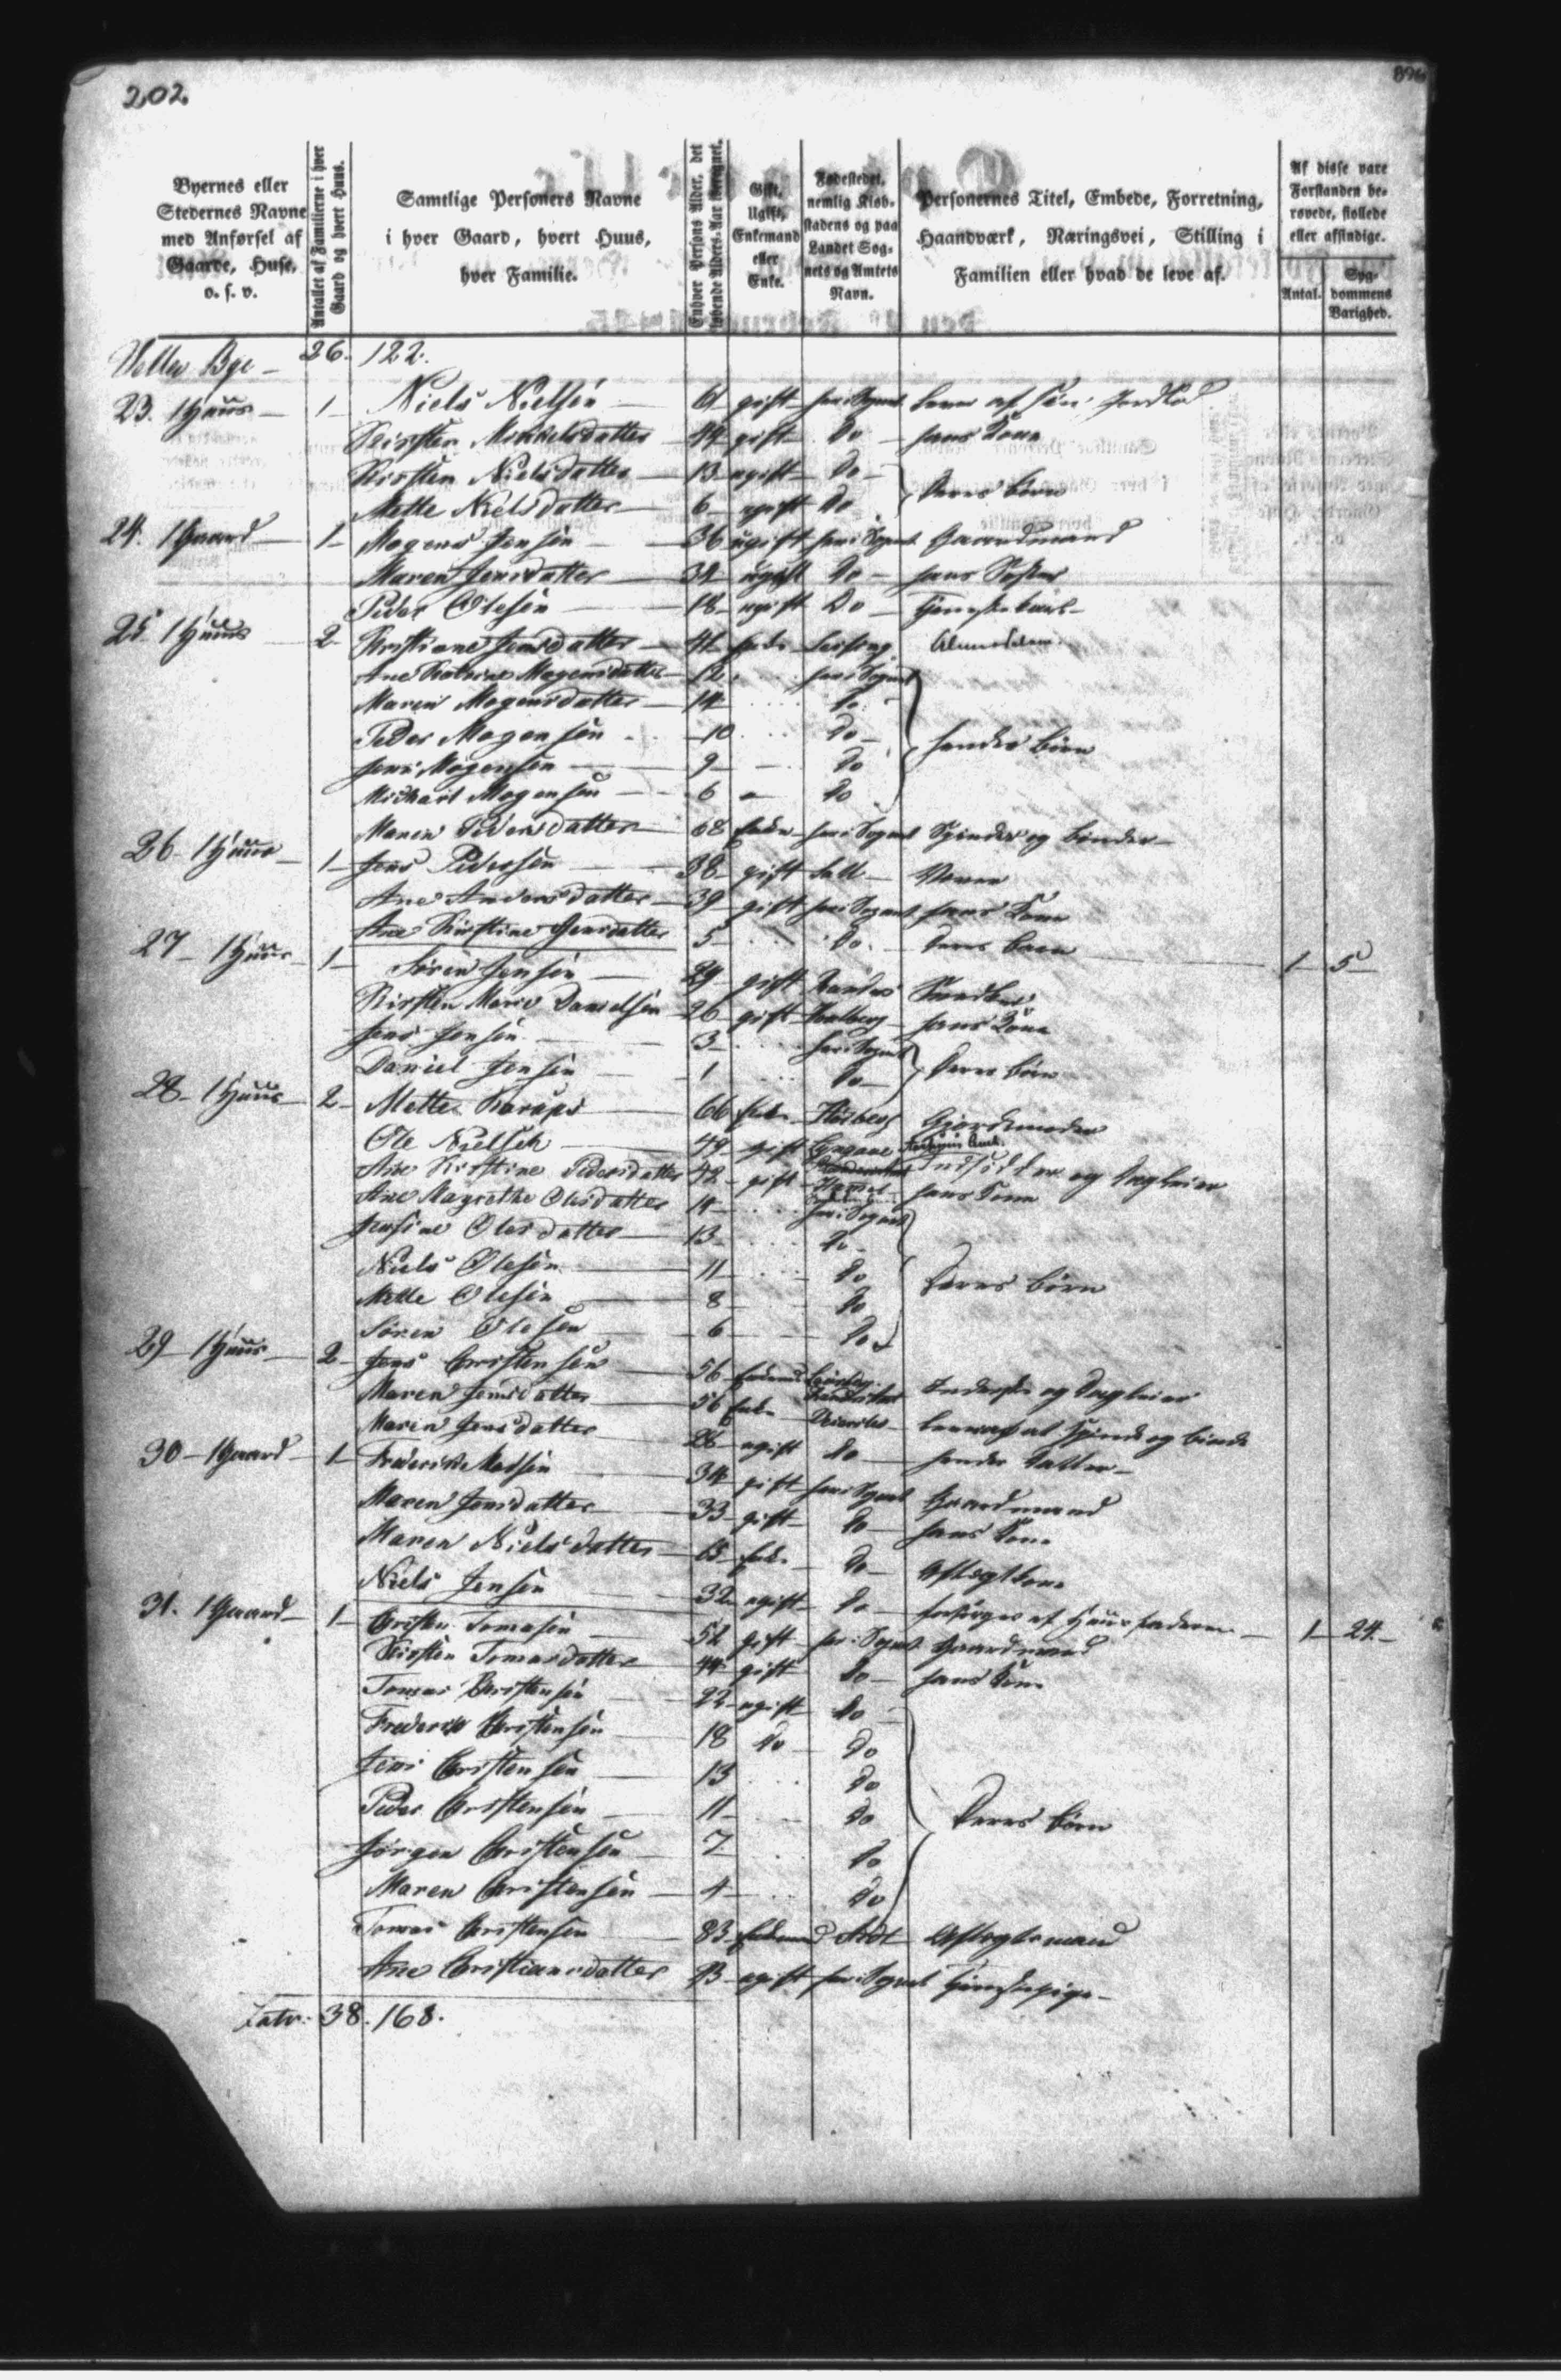 202.
Byernes eller Stedernes Navne med Anførsel af Gaarde, Huse, o. s. v.
Antallet af Familierne i hver Gaard og hvert Huus.
Samtlige Personers Navne i hver Gaard, hvert Huus, hver Familie.
Enhver Persons Alder, det løbende Alders-Aar iberegnet.
Gift, Ugift, Enkemand eller Enke.
Fødestedet, nemlig Kiøbstadens og paa Landet Sognets og Amtets Navn.
Personernes Titel, Embede, Forretning, Haandværk, Næringsvei, Stilling i Familien eller hvad de leve af.
Af disse vare Forstanden berøvede, stollede eller afsindige.
Antal. Sygdommens Varighed.
Bye 26. 122.
23. 1 Huus 1 Niels Nielsen 61 gift her i Sognet lever af sin Jordlod
Kirsten Mikkelsdatter 49 gift do hans Kone
Kirsten Nielsdatter 13 ugift do
Mette Nielsdatter 6 ugift do deres børn
24. 1 Gaard 1 Mogens Jensen 36 ugift her i Sognet Gaardmand
Maren Jensdatter 32 ugift do hans Søster
Peder Olesen 18 ugift do Tjenestekarl
25. 1 Huus 2 Kristiane Jensdatter 41 Enke Almisselem
Ane Katrine Mogensdatter 12 her i Sognet
Maren Mogensdatter 14 do
Peder Mogensen 10 do hendes børn
Jens Mogensen 9 do
Michael Mogensen 6 do
Maren Pedersdatter 68 Enke her i Sognet Spinder og binder
26 1 Huus 1 Jens Pedersen 38 gift Væver
Ane Andersdatter 39 gift her i Sognet hans Kone
Ane Kirstine Jensdatter 5 do deres barn 1 5
27 1 Huus 1 Søren Jensen 29 gift Randers
Kirsten Marie Danielsen 26 gift hans Kone
Jens Jensen 3 her i Sognet
Daniel Jensen 1 do deres børn
28 1 Huus 2 Mette 66 Enke Gjordemoder
Ole Nielsen 49 gift Indsidder og Dagleier
Ane Kirstine Pedersdatter 42 gift hans Kone
Ane Magrethe Olesdatter her i Sognet
Jensine Olesdatter 13 do
Niels Olesen 11 do deres børn
Mette Olesen 8 do
Søren Olesen 6 do
29 1 Huus 2 Jens Christensen 56 Enkemand og Dagleier
Maren Jensdatter 56 Enke lever af at Spinde og binde
Maren Jensdatter 26 ugift do hendes Datter
30 1 Gaard 1 Frederik Madsen 34 gift her i Sognet Gaardmand
Maren Jensdatter 33 gift do hans Kone
Maren Nielsdatter 65 Enke do Aftægtkone
Niels Jensen 32 ugift do forsørges af Huusfaderen 1 24
31. 1 Gaard 1 Christen Tomasen 52 gift her i Sognet Gaardmand
Kirsten Tomasdatter 44 gift do hans Kone
Tomas Christensen 22 ugift do
Frederik Christensen 18 do do
Jens Christensen 13 do
Peder Christensen 11 do deres børn
Jørgen Christensen 7 do
Maren Christensen 4 do
Tomas Christensen 83 Enkemand Aftægtsmand
Ane Christiansdatter ugift her i Sognet Tjenestepige
Latr: 38. 168.